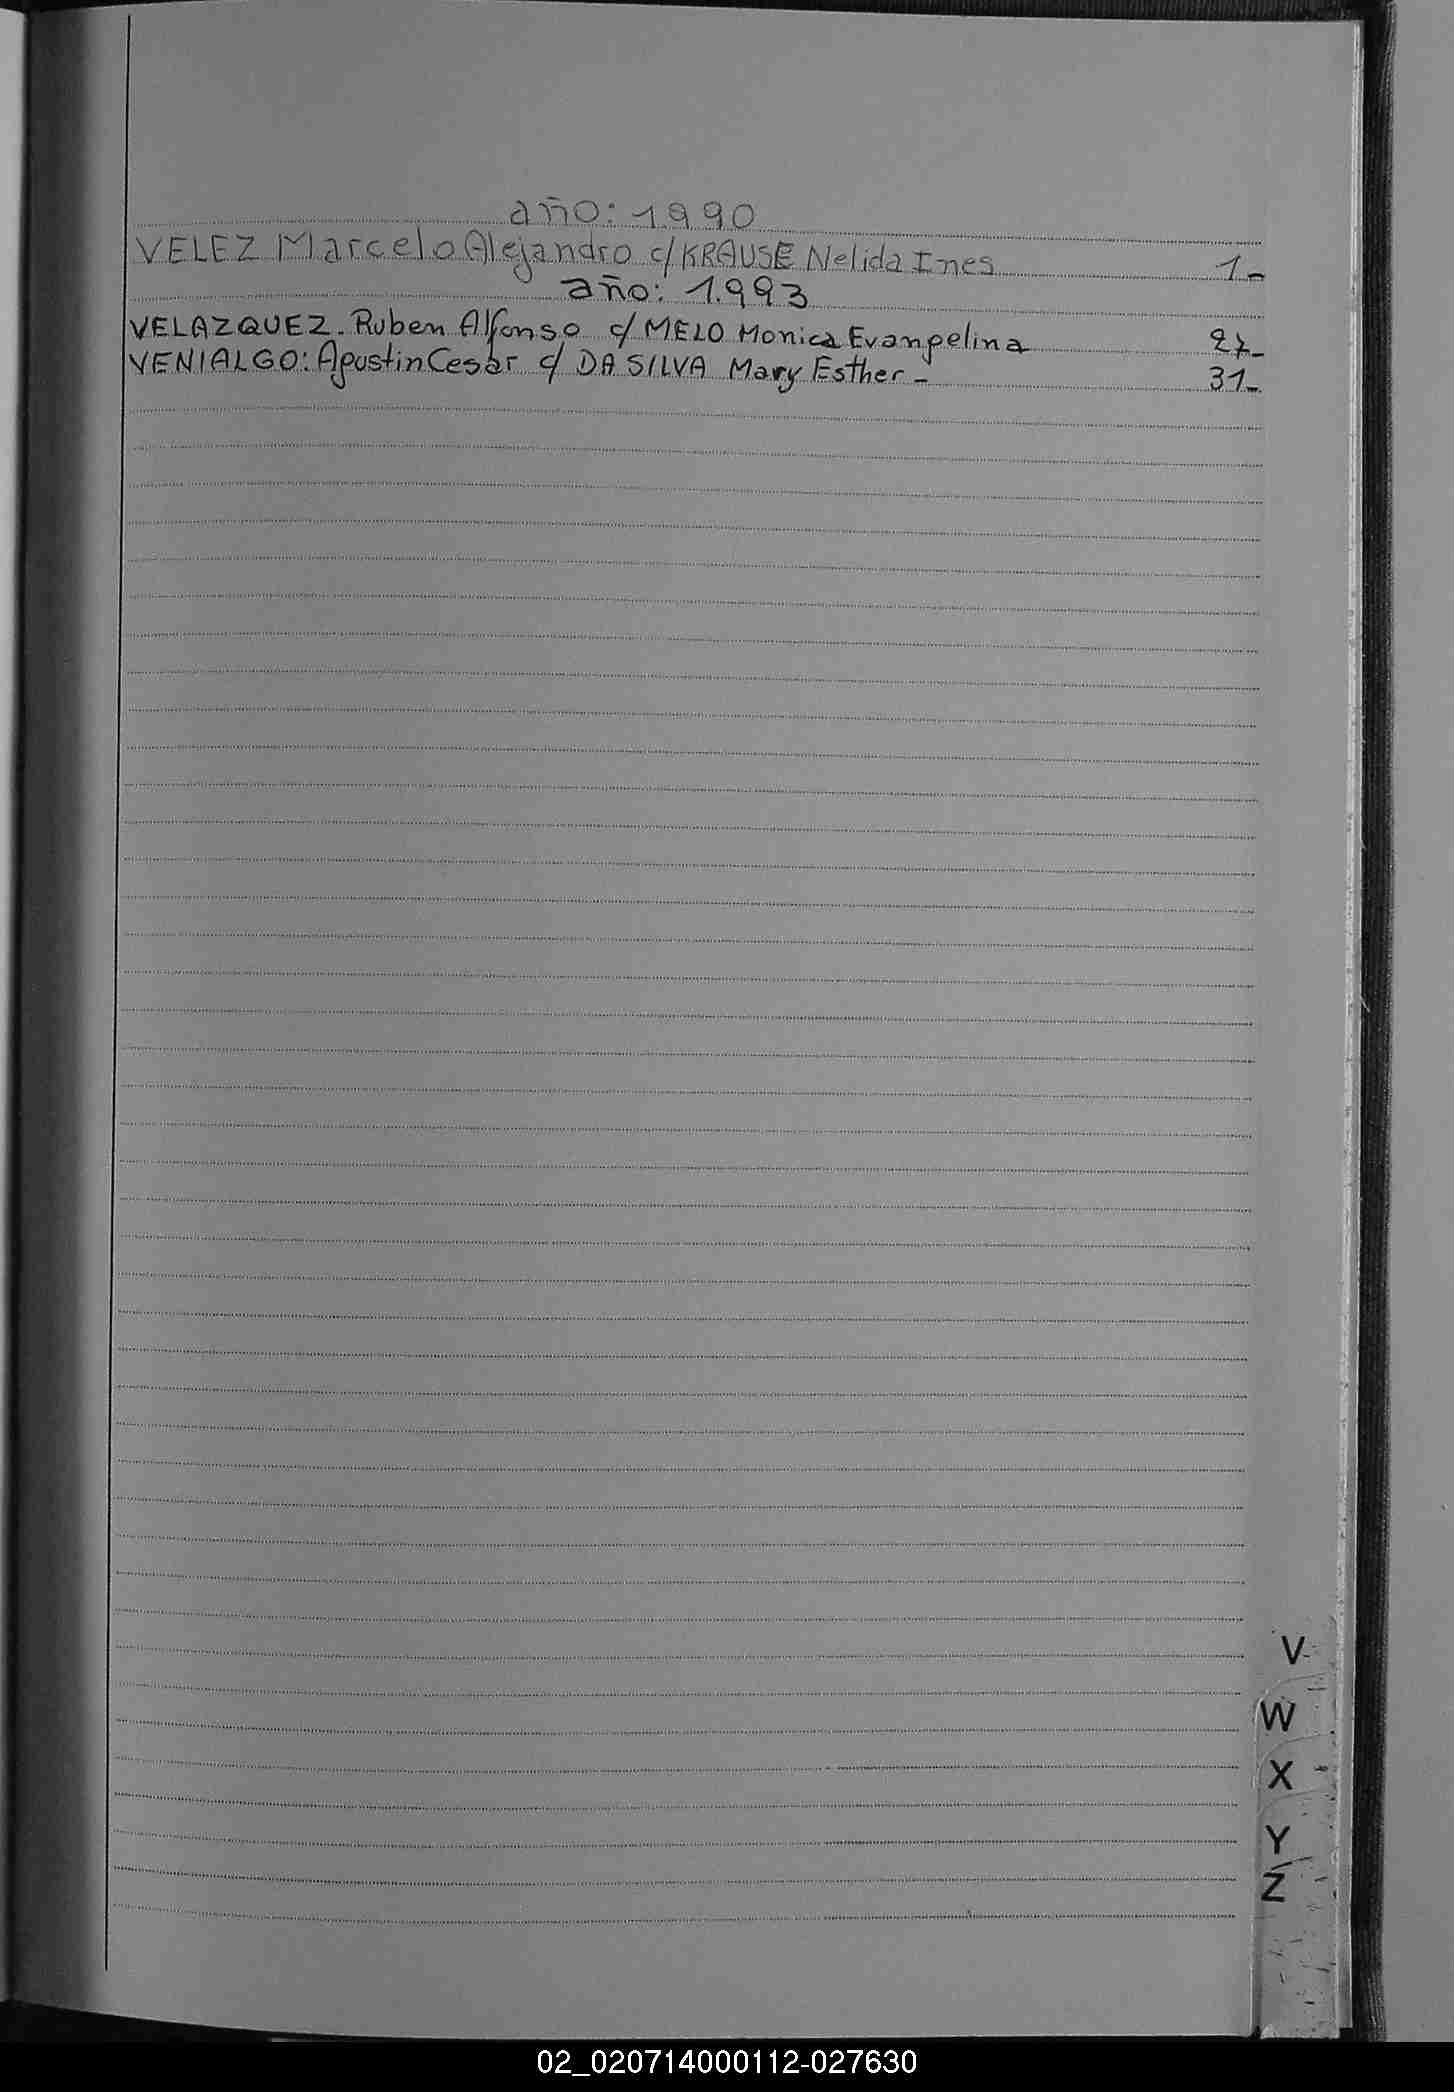 año: 1.990
VELEZ Marcelo Alejandro c/KRAUSE Nelida Ines 1_
año: 1.993
VELAZQUEZ. Ruben Alfonso c/ MELO Monica Evangelina 27_
VENIALGO: Agustin Cesar c/ DA SILVA Mary Esther_ 31_
V
W
X
Y
Z
02_020714000112-027630